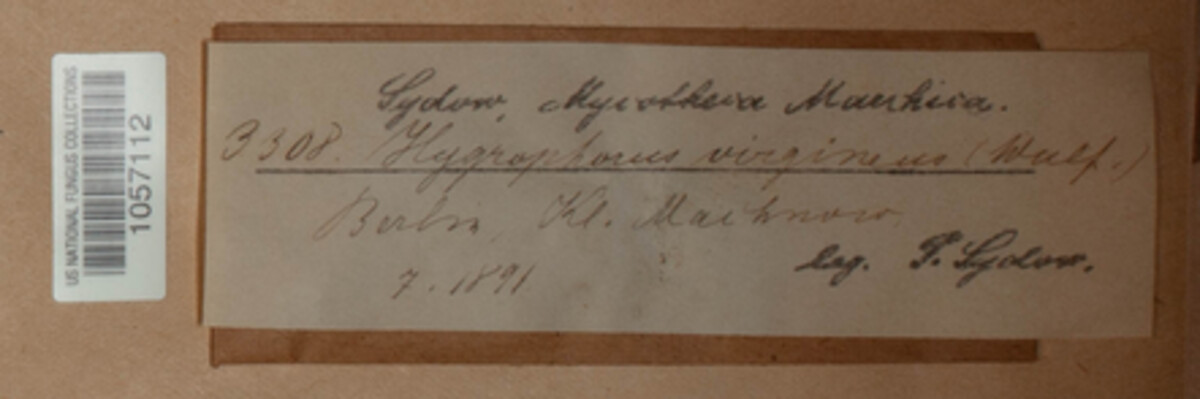 US NATIONAL FUNGUS COLLECTIONS
1057112
Sydow, Mycotheca Marchica.
3308. Hygrophorus virgineus (Wulf.)
Berlin, Kl. Machnow
7. 1891
leg. P. Sydow.